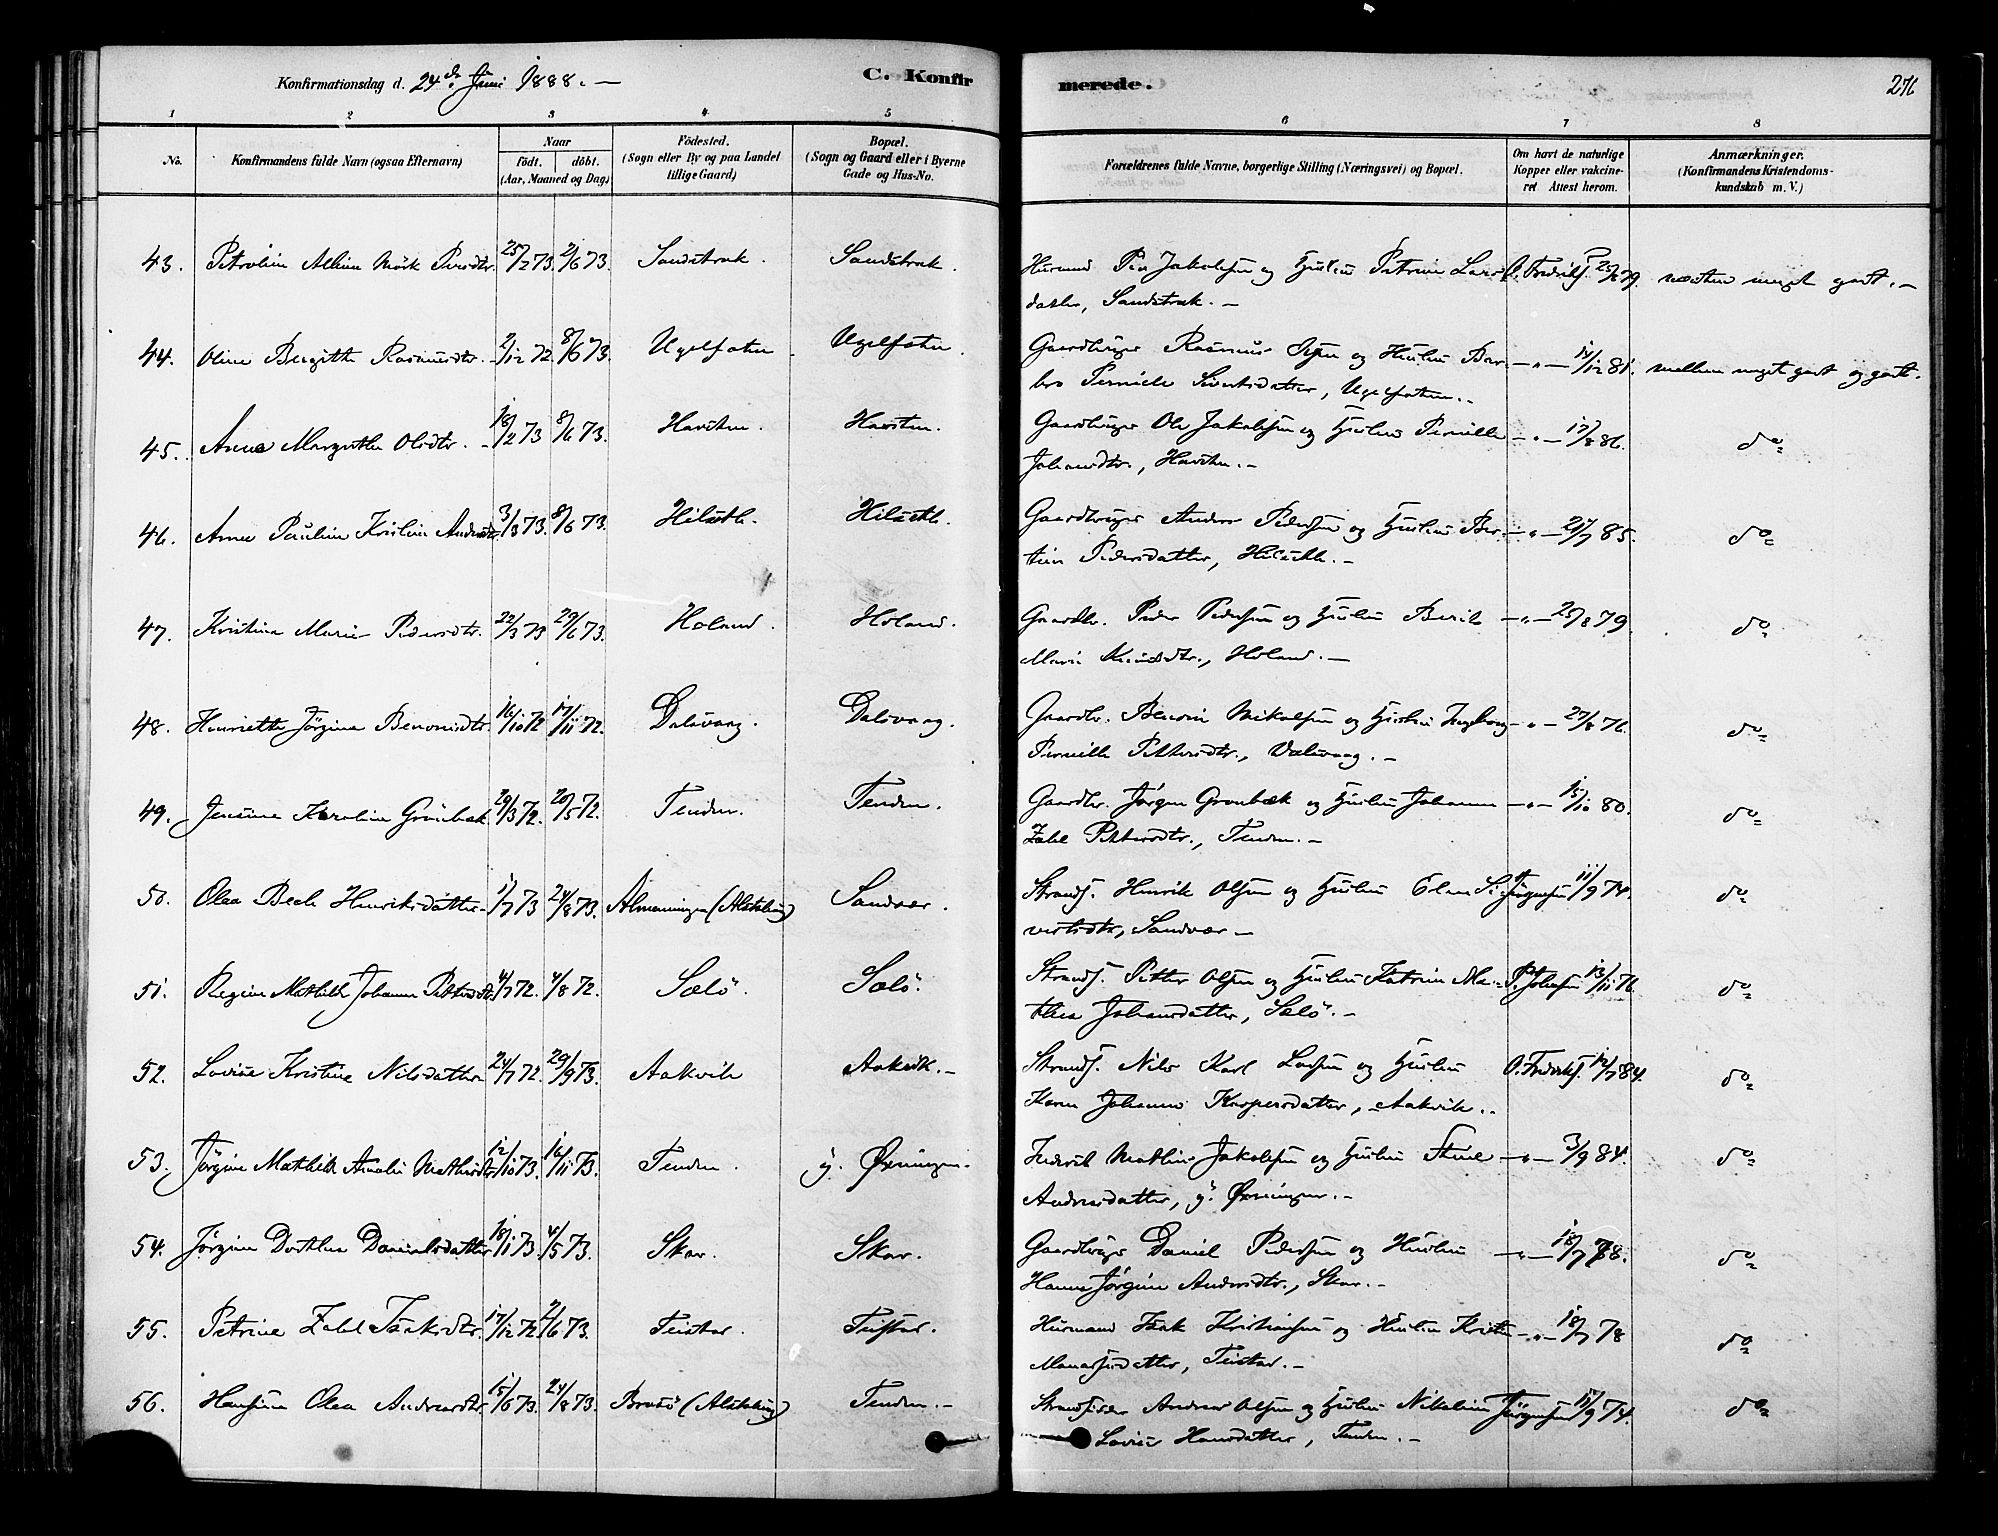 Konfirmationsdag d. 24de Juni 1888. —
C. Konfirmerede.
276
1 2 3 4 5 6 7 8
No.
Konfirmandens fulde Navn (ogsaa Efternavn)
Naar
födt. döbt.
(Aar, Maaned og Dag)
Födested.
(Sogn eller By og paa Landet
tillige Gaard)
Bopæl.
(Sogn og Gaard eller i Byerne
Gade og Hus-No.
Forældrenes fulde Navne, borgerlige Stilling (Næringsvei) og Bopæl.
Om havt de naturlige
Kopper eller vakcine-
ret Attest herom.
Anmærkninger.
(Konfirmandens Kristendoms-
kundskab m. V.)
43. Petroline Albine Mörk Persdtr. 25/2 73. 2/6 73. Sandstrak. Sandstrak. Husmand Per Jakobsen og Hustru Petrine Lars- O. Fredriks. 25/8 79. næsten meget godt. —
datter, Sandstrak. —
44. Oline Bergitte Rasmusdtr. 2/12 72. 8/6 73. Ugelfoten Ugelfoten. Gaardbruger Rasmus Olsen og Hustru Bar- — " — 14/12 81. mellem meget godt og godt.
bro Pernille Sivertsdatter, Ugelfoten. —
45. Anne Margrethe Olsdtr. 18/2 73 8/6 73. Havsten. Havsten. Gaardbruger Ole Jakobsen og Hustru Pernille — " — 17/8 86. do
Johansdtr., Havsten. —
46. Anne Pauline Kristine Andersdtr. 3/3 73. 8/6 73. Hilsæth. Hilsæth. Gaardbruger Anders Pedersen og Hustru Ber- — " — 24/7 85. do
tine Pedersdatter, Hilsæth. —
47. Kristina Marie Pedersdtr. 22/3 73 29/6 73. Holand. Holand. Gaardbr. Peder Pedersen og Hustru Berit — " — 25/8 79. do
Marie Knudsdtr., Holand. —
48. Henriette Jörgine Benonisdtr. 16/10 72 17/11 72. Dalsvaag. Dalsvaag. Gaardbr. Benoni Mikalsen og Hustru Ingborg — " — 27/8 76. do
Pernille Pettersdtr., Dalsvaag. —
49. Jensine Karoline Grönbæk 29/3 72. 20/5 72. Tenden. Tenden. Gaardbr. Jörgen Grönbæk og Hustru Johanna — " — 15/10 80. do
Zahl Pettersdtr., Tenden. —
50. Olea Bech Henriksdatter 1/7 73 24/8 73. Almenningen (Alstahaug) Sandvær. Strands. Henrik Olsen og Hustru Elen Si- Jörgensen 11/9 74. do
vertsdtr, Sandvær —
51. Regine Mathilde Johanna Pettersdtr. 4/7 72. 4/8 72. Sælö. Sælö. Strands. Petter Olsen og Hustru Katrine Ma- P. Johnsen 13/11 76. do
thea Johansdatter, Sælö. —
52. Lovise Kristine Nilsdatter 24/7 72. 29/9 73. Aakvik Aakvik. — Strands. Nils Karl Larsen og Hustru O. Fredriks. 12/7 84. do
Karen Johanna Kaspersdatter, Aakvik.
53. Jörgine Mathilde Amalie Mathisdtr. 12/10 73. 16/11 73. Tenden. y. Öxningen. Inderst Mathias Jakobsen og Hustru Stine — " — 3/9 84. do
Andersdatter, y. Öxningen. —
54. Jörgine Dorthea Danielsdatter 18/1 73. 4/5 73. Skar. Skar. Gaardbruger Daniel Pedersen og Hustru — " — 18/7 78. do
Hanna Jörgine Andersdtr., Skar. —
55. Petrine Zahl Isaksdtr. 17/12 72. 2/6 73. Teistar. Teistar. Husmand Isak Kristiansen og Hustru Kristine — " — 18/7 78 do
Manassesdatter, Teistar. —
56. Hansine Olea Andreasdtr. 15/6 73. 24/8 73. Brasö (Alstahaug) Tenden. — Strandsidder Andreas Olsen og Hustru Nikoline Jörgensen 11/9 74. do
Lovise Hansdatter, Tenden. —